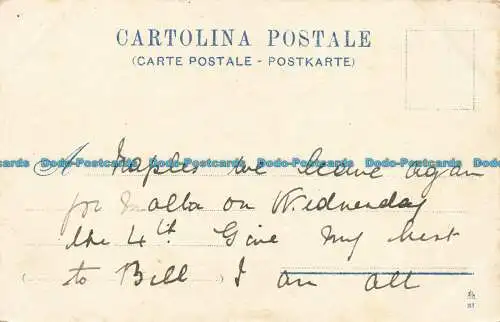 CARTOLINA POSTALE
(CARTE POSTALE - POSTKARTE)
A Naples we leave again
for Malta on Wednesday
the 4th. Give my best
to Bill I am all
Dodo-Postcards Dodo-Postcards Dodo-Postcards Dodo-Postcards